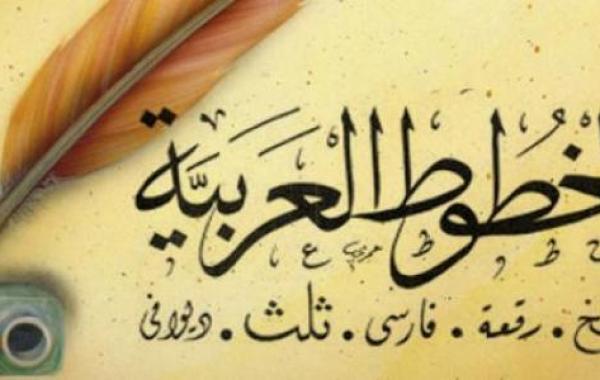 خطوط العربيّة
رقعة • فارسي • ثلث • ديواني